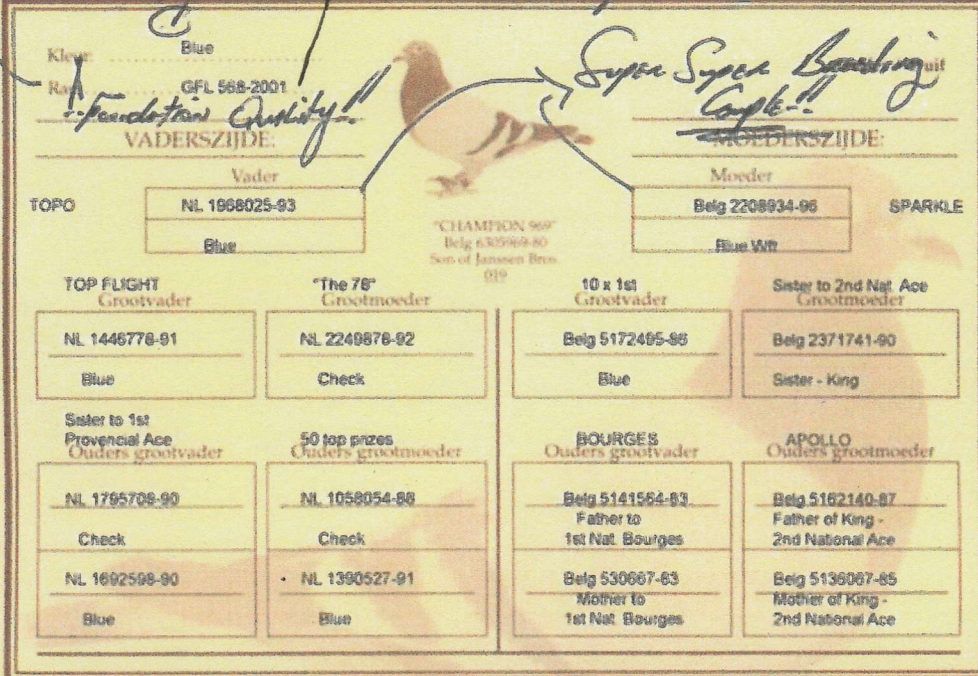 Kleur: Blue
GFL 568-2001
Foundation Quality!!
Super Super Breeding
Couple-!!
uit
VADERSZIJDE:
MOEDERSZIJDE:
Vader
Moeder
TOPO
NL 1968025-93
Blue
"CHAMPION 969"
Belg 6305969-80
Son of Janssen Bros.
019
Belg 2208934-96
SPARKLE
Blue Wft
TOP FLIGHT
Grootvader
NL 1446778-91
Blue
"The 78"
Grootmoeder
NL 2249878-92
Check
10 x 1st
Grootvader
Belg 5172495-86
Blue
Sister to 2nd Nat. Ace
Grootmoeder
Belg 2371741-90
Sister - King
Sister to 1st
Provencial Ace
Ouders grootvader
NL 1795708-90
Check
NL 1692598-90
Blue
50 top prizes
Ouders grootmoeder
NL 1058054-88
Check
NL 1390527-91
Blue
BOURGES
Ouders grootvader
Belg 5141564-83
Father to
1st Nat. Bourges
Belg 530667-83
Mother to
1st Nat. Bourges
APOLLO
Ouders grootmoeder
Belg 5162140-87
Father of King -
2nd National Ace
Belg 5136067-85
Mother of King -
2nd National Ace